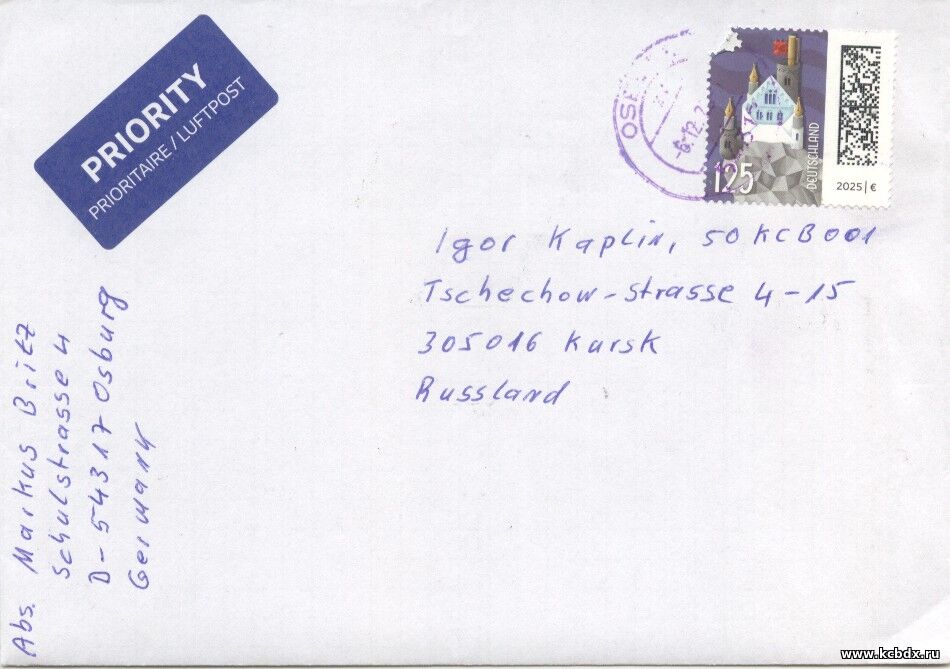 PRIORITY
PRIORITAIRE / LUFTPOST
125
DEUTSCHLAND
2025 | €
Igor Kaplin, 50KCB001
Tschechow-Strasse 4-15
305016 Kursk
Russland
Abs. Markus Britz
Schulstrasse 4
D-54317 Osburg
Germany
www.kcbdx.ru